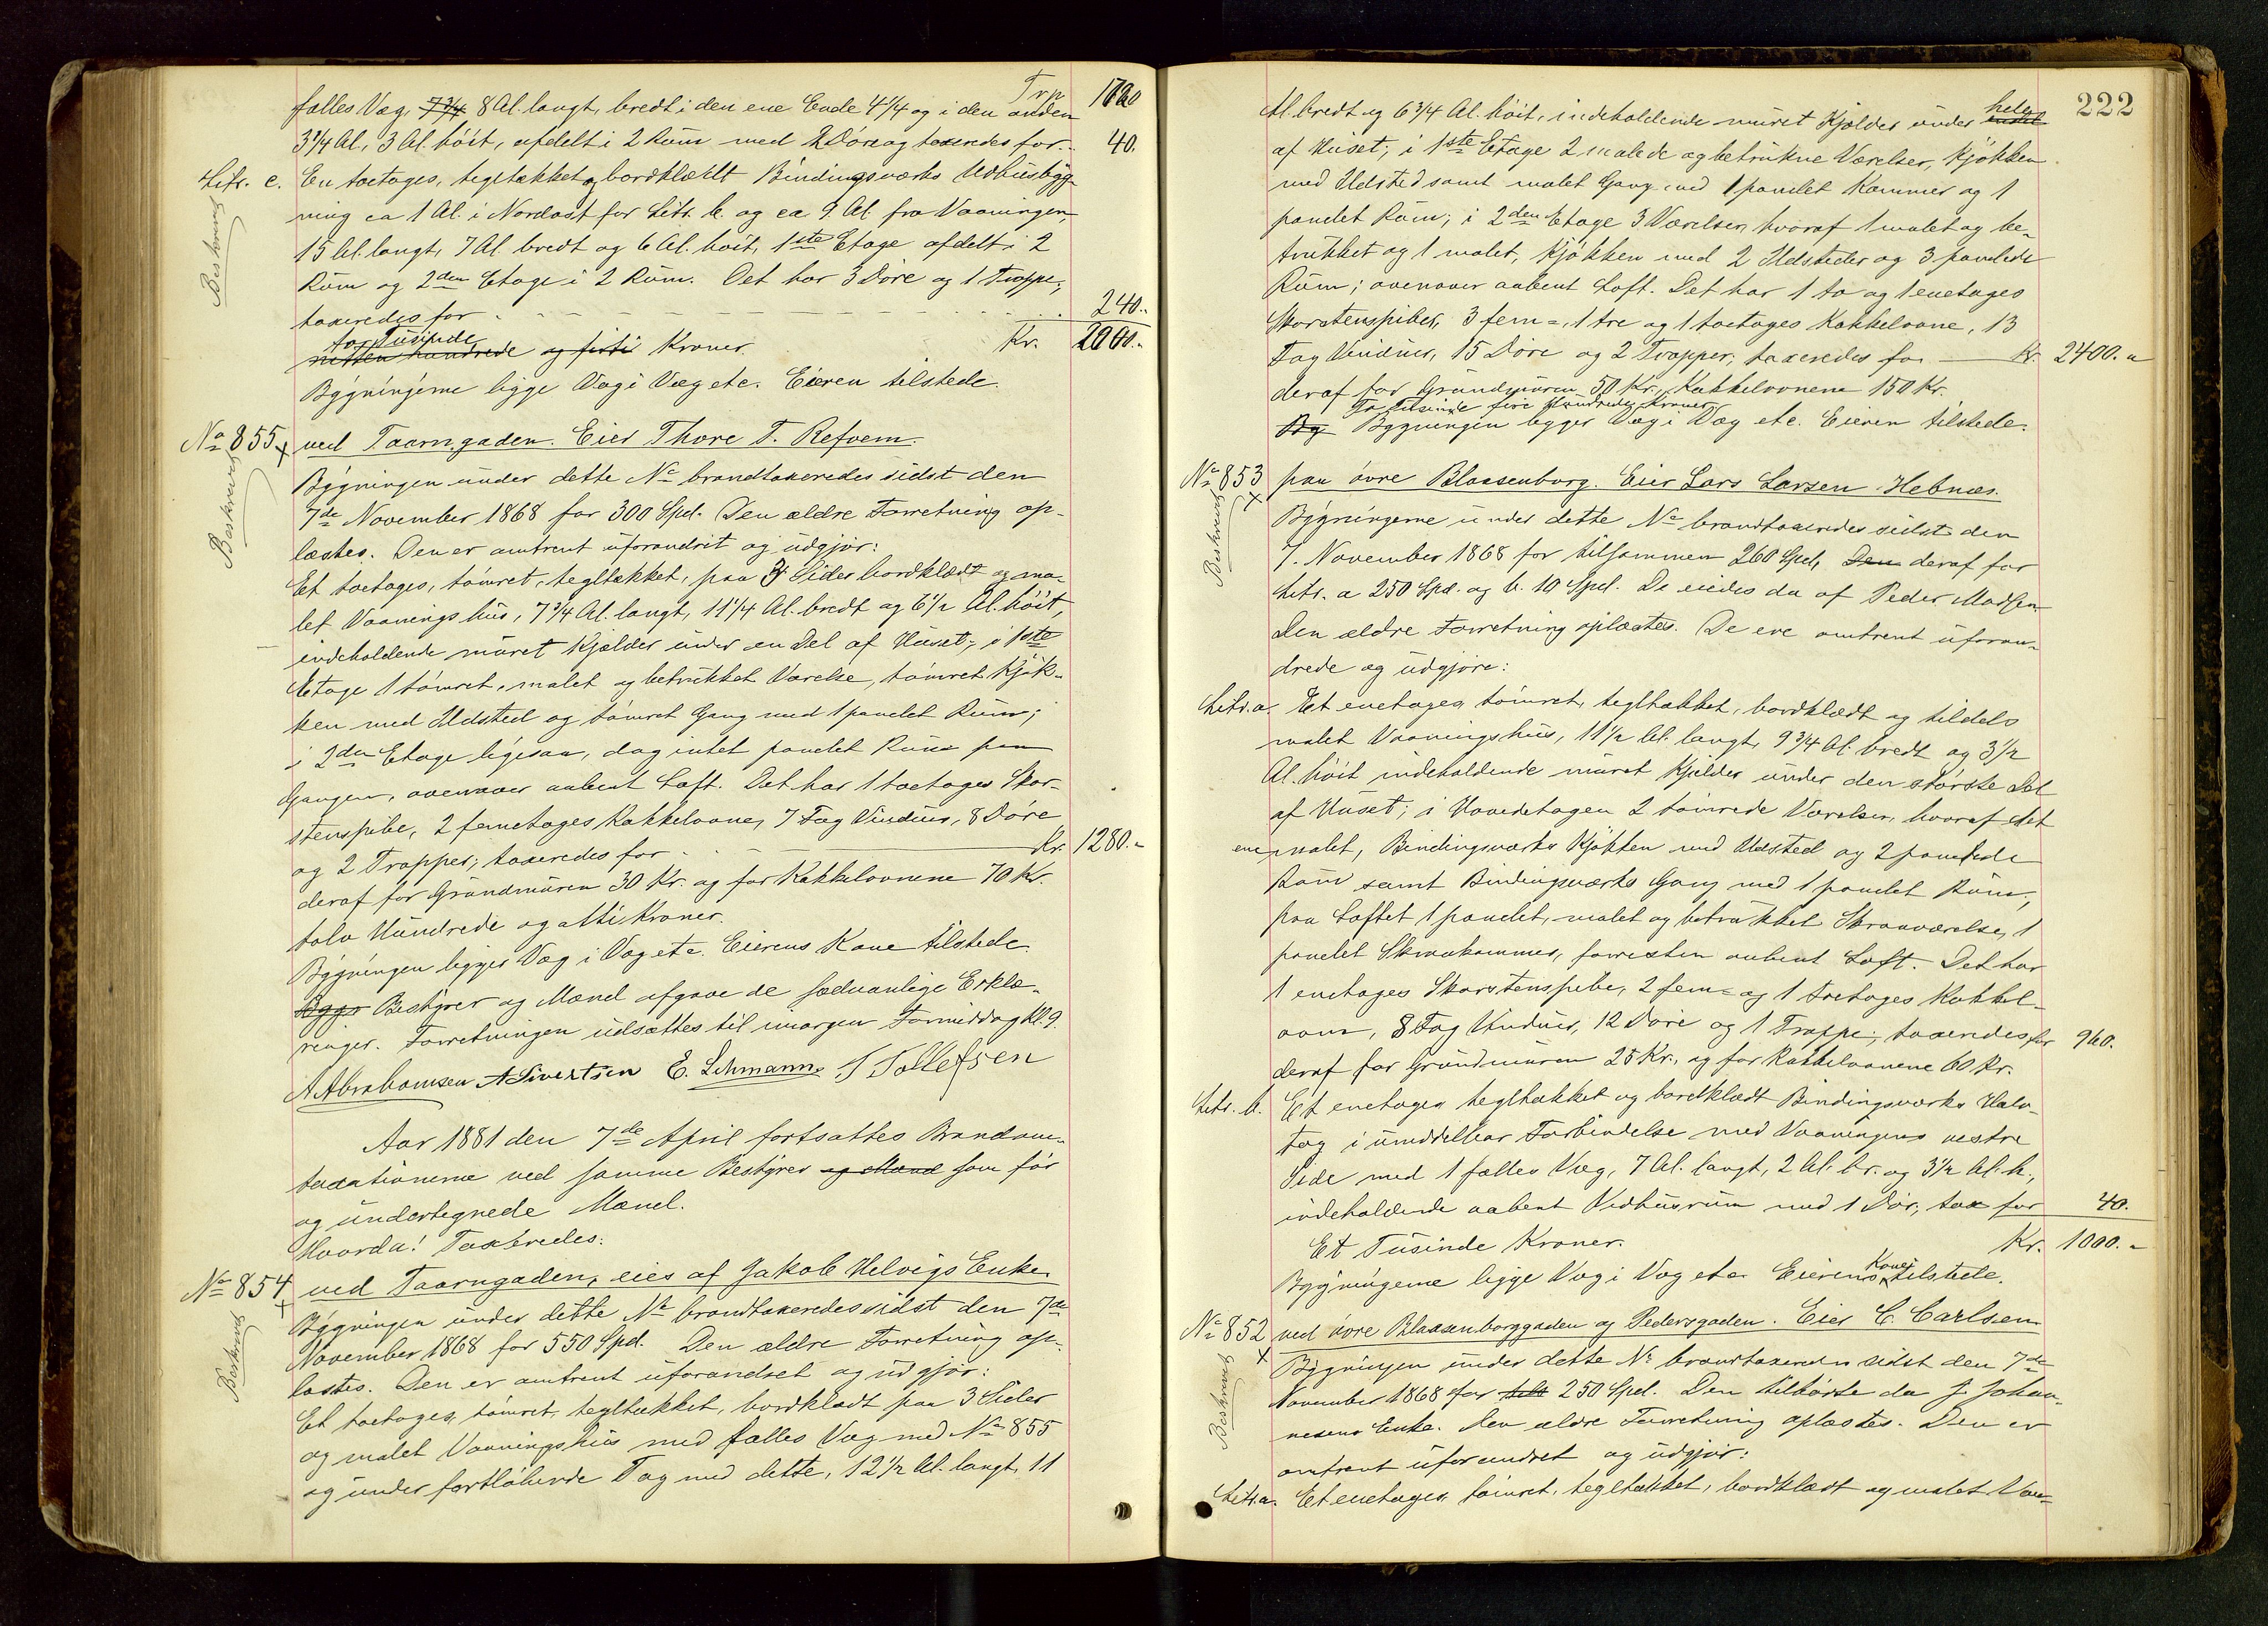 Trp 1720
fælles Væg, 7 3/4 8 Al. langt, bredt i den ene Ende 4 1/4 og i den anden
3 3/4 Al., 3 Al. höit, afdelt i 2 Rum med 2 Döre og taxeredes for 40.
Litr. c. En toetages, tegltækket og bordklædt Bindingsværks Udhusbyg-
Beskrevet
ning ca 1 Al. i Nordost for Litr. b. og ca 9 Al. fra Vaaningen,
15 Al. langt, 7 Al. bredt og 6 Al. höit, 1ste Etage afdelt i 2
Rum og 2den Etage i 2 Rum. Det har 3 Döre og 1 Trappe;
taxeredes for 240..
to Tusinde
nitten hundrede og firti Kroner. Kr. 2000.-
Bygningerne ligge Væg i Væg etc. Eieren tilstede.
No 855 ved Taarngaden. Eier Thore T. Refvem.
Beskrevet
Bygningen under dette No brandtaxeredes sidst den
7de November 1868 for 300 Spd. Den ældre Forretning op-
læstes. Den er omtrent uforandrit og udgjör:
Et toetages, tömret, tegltækket, paa 3 Sider bordklædt og ma-
let Vaaningshus, 7 3/4 Al. langt, 11 1/4 Al. bredt og 6 1/2 Al. höit,
indeholdende muret Kjælder under en Del af Huset; i 1ste
Etage 1 tömret, malet og betrukket Værelse, tömret Kjök-
ken med Ildsted og tömret Gang med 1 panelet Rum;
i 2den Etage ligesaa, dog intet panelet Rum paa
Gangen, ovenover aabent Loft. Det har 1 toetages Skor-
stenspibe, 2 femetages Kakkelovne, 7 Fag Vinduer, 8 Döre
og 2 Trapper; taxeredes for Kr. 1280.-
deraf for Grundmuren 30 Kr. og for Kakkelovnene 70 Kr.
tolv Hundrede og otti Kroner.
Bygningen ligger Væg i Væg etc. Eierens Kone tilstede.
Bygn Bestyrer og Mænd afgave de sædvanlige Erklæ-
ringer. Forretningen udsættes til imorgen Formiddag Kl. 9.
A Abrahamsen A Sivertsen E. Lehmann T Tollefsen
Aar 1881 den 7de April fortsattes Brandom-
taxationerne ved samme Bestyrer og Mænd som för
og undertegnede Mænd.
Hvorda! Taxeredes:
No 854 ved Taarngaden, eies af Jakob Helvigs Enke
Beskrevet
Bygningen under dette No brandtaxeredes sidst den 7de
November 1868 for 550 Spd. Den ældre Forretning op-
læstes. Den er omtrent uforandret og udgjör:
Et toetages, tömret, tegltækket, bordklædt paa 3 Sider
og malet Vaaningshus med fælles Væg med No 855
og under fortlöbende Tag med dette, 12 1/2 Al. langt, 11
222
Al. bredt og 6 3/4 Al. höit, indeholdende muret Kjælder under hele
af Huset; i 1ste Etage 2 malede og betrukne Værelser, Kjökken
med Ildsted samt malet Gang med 1 panelet Kammer og 1
panelet Rum; i 2den Etage 3 Værelser, hvoraf 1 malet og be-
trukket og 1 malet, Kjökken med 2 Ildsteder og 3 panelede
Rum; ovenover aabent Loft. Det har 1 to og 1 enetages
Skorstenspiber, 3 fem-, 1 tre og 1 toetages Kakkelovne, 13
Fag Vinduer, 15 Döre og 2 Trapper; taxeredes for Kr. 2400.-
deraf for Grundmuren 50 Kr., Kakkelovnene 150 Kr.
To Tusinde fire Hundrede Kroner
Byg Bygningen ligger Væg i Væg etc. Eieren tilstede.
No 853 paa övre Blaasenborg. Eier Lars Larsen Hebnæs.
Beskrevet
Bygningerne under dette No brandtaxeredes sidst den
7. November 1868 for tilsammen 260 Spd., Den deraf for
Litr. a 250 Spd. og b. 10 Spd. De eiedes da af Peder Madsen.
Den ældre Forretning oplæstes. De ere omtrent uforan-
drede og udgjöre:
Litr. a. Et enetages, tömret, tegltækket, bordklædt og tildels
malet Vaaningshus, 11 1/2 Al. langt, 9 3/4 Al. bredt og 3 1/2
Al. höit indeholdende muret Kjælder under den störste Del
af Huset; i Hovedetagen 2 tömrede Værelser, hvoraf det
ene malet, Bindingsværks Kjökken med Ildsted og 2 panelede
Rum samt Bindingsværks Gang med 1 panelet Rum;
paa Loftet 1 panelet, malet og betrukket Skraaværelse, 1
panelet Skraakammer, forresten aabent Loft. Det har
1 enetages Skorstenspibe, 2 fem- og 1 toetages Kakkel-
ovne, 8 Fag Vinduer, 12 Döre og 1 Trappe; taxeredes for 960.
deraf for Grundmuren 25 Kr., og for Kakkelovnene 60 Kr.
Litr. b. Et enetages tegltækket og bordklædt Bindingsværks Halv-
tag i umiddelbar Forbindelse med Vaaningens vestre
Side med 1 fælles Væg, 7 Al. langt, 2 Al. br. og 3 1/2 Al. h.,
indeholdende aabent Vedhusrum med 1 Dör, tax for 40.
Et Tusinde Kroner. Kr. 1000.-
Bygningerne ligge Væg i Væg etc Eierens Kone tilstede.
No 852 ved övre Blaasenborggaden og Pedersgaden. Eier C. Carlsen
Beskrevet
Bygningen under dette No brandtaxeredes sidst den 7de
November 1868 for 250 Spd. Den tilhörte da J. Johan-
nesens Enke. Den ældre Forretning oplæstes. Den er
omtrent uforandret og udgjör:
Litr. a. Et enetages, tömret, tegltækket, bordklædt og malet Vaa-